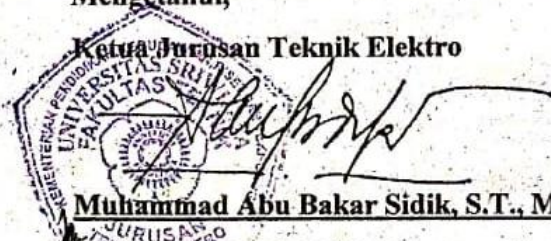 Mengetahui,
Ketua Jurusan Teknik Elektro
KEMENTERIAN PENDIDIKAN
UNIVERSITAS
FAKULTAS
Muhammad Abu Bakar Sidik, S.T., M
JURUSAN